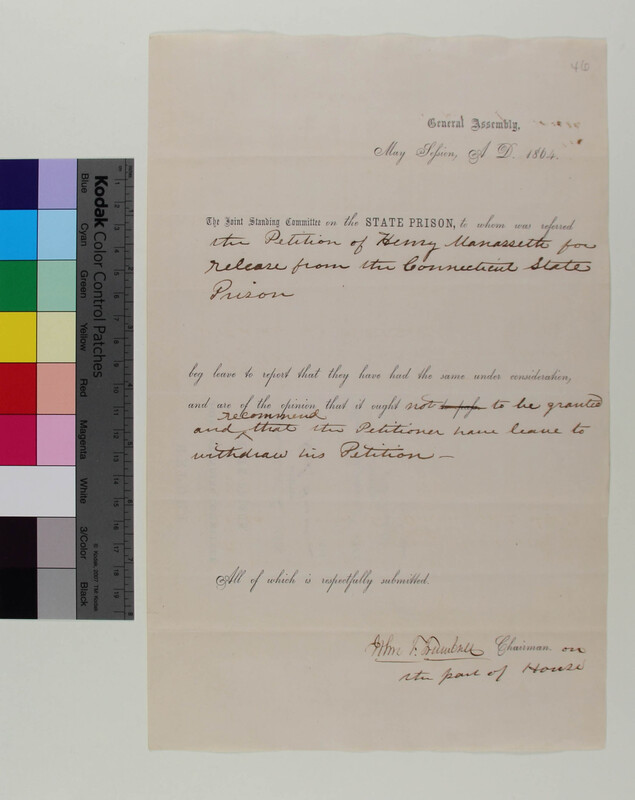 46
General Assembly,
May Session, A. D. 1864.
The Joint Standing Committee on the STATE PRISON, to whom was referred
the Petition of Henry Manasseth for
release from the Connecticut State
Prison
beg leave to report that they have had the same under consideration,
and are of the opinion that it ought not to be granted
recommend
and ^ that the Petitioner have leave to
withdraw his Petition —
All of which is respectfully submitted.
John F. Trumbull Chairman on
the part of House
Kodak Color Control Patches
Blue
Cyan
Green
Yellow
Red
Magenta
White
3/Color
Black
© Kodak, 2007 TM: Kodak